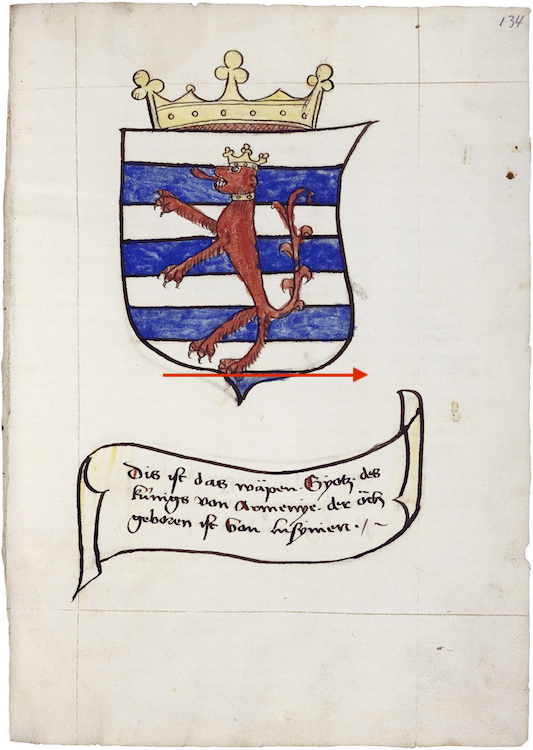 134
Dis ist das wäpen Gyotz des
künigs von Armenye. der öch
geboren ist von lusynien.